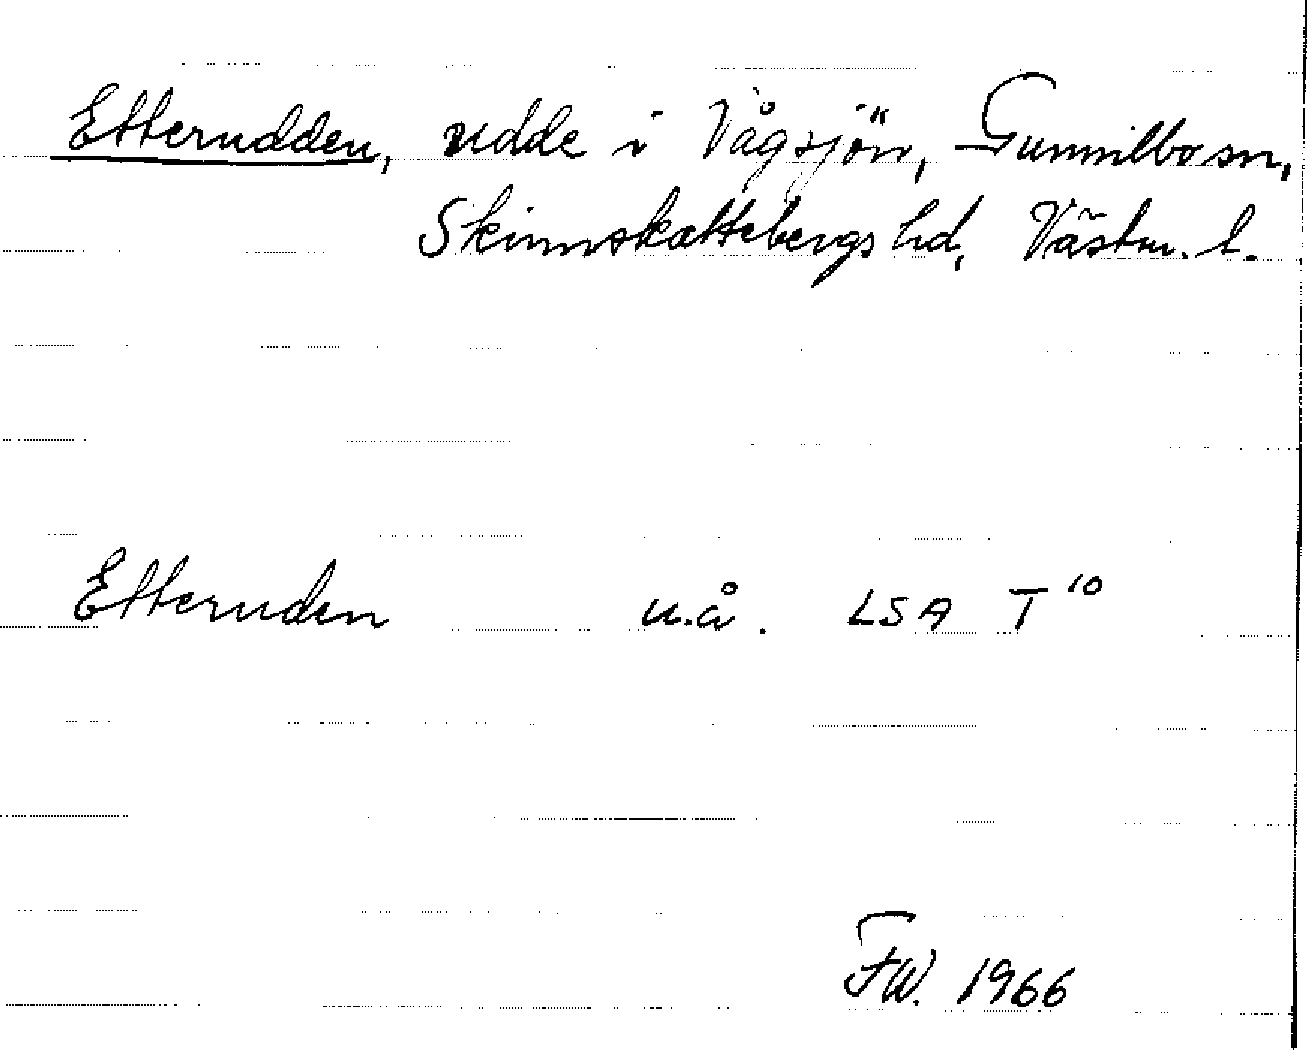 Etterudden, udde i Vågsjön, Gunnilbo sn,
Skinnskattebergs hd, Västm. l.
Etteruden u.å. LSA T 10
FW. 1966